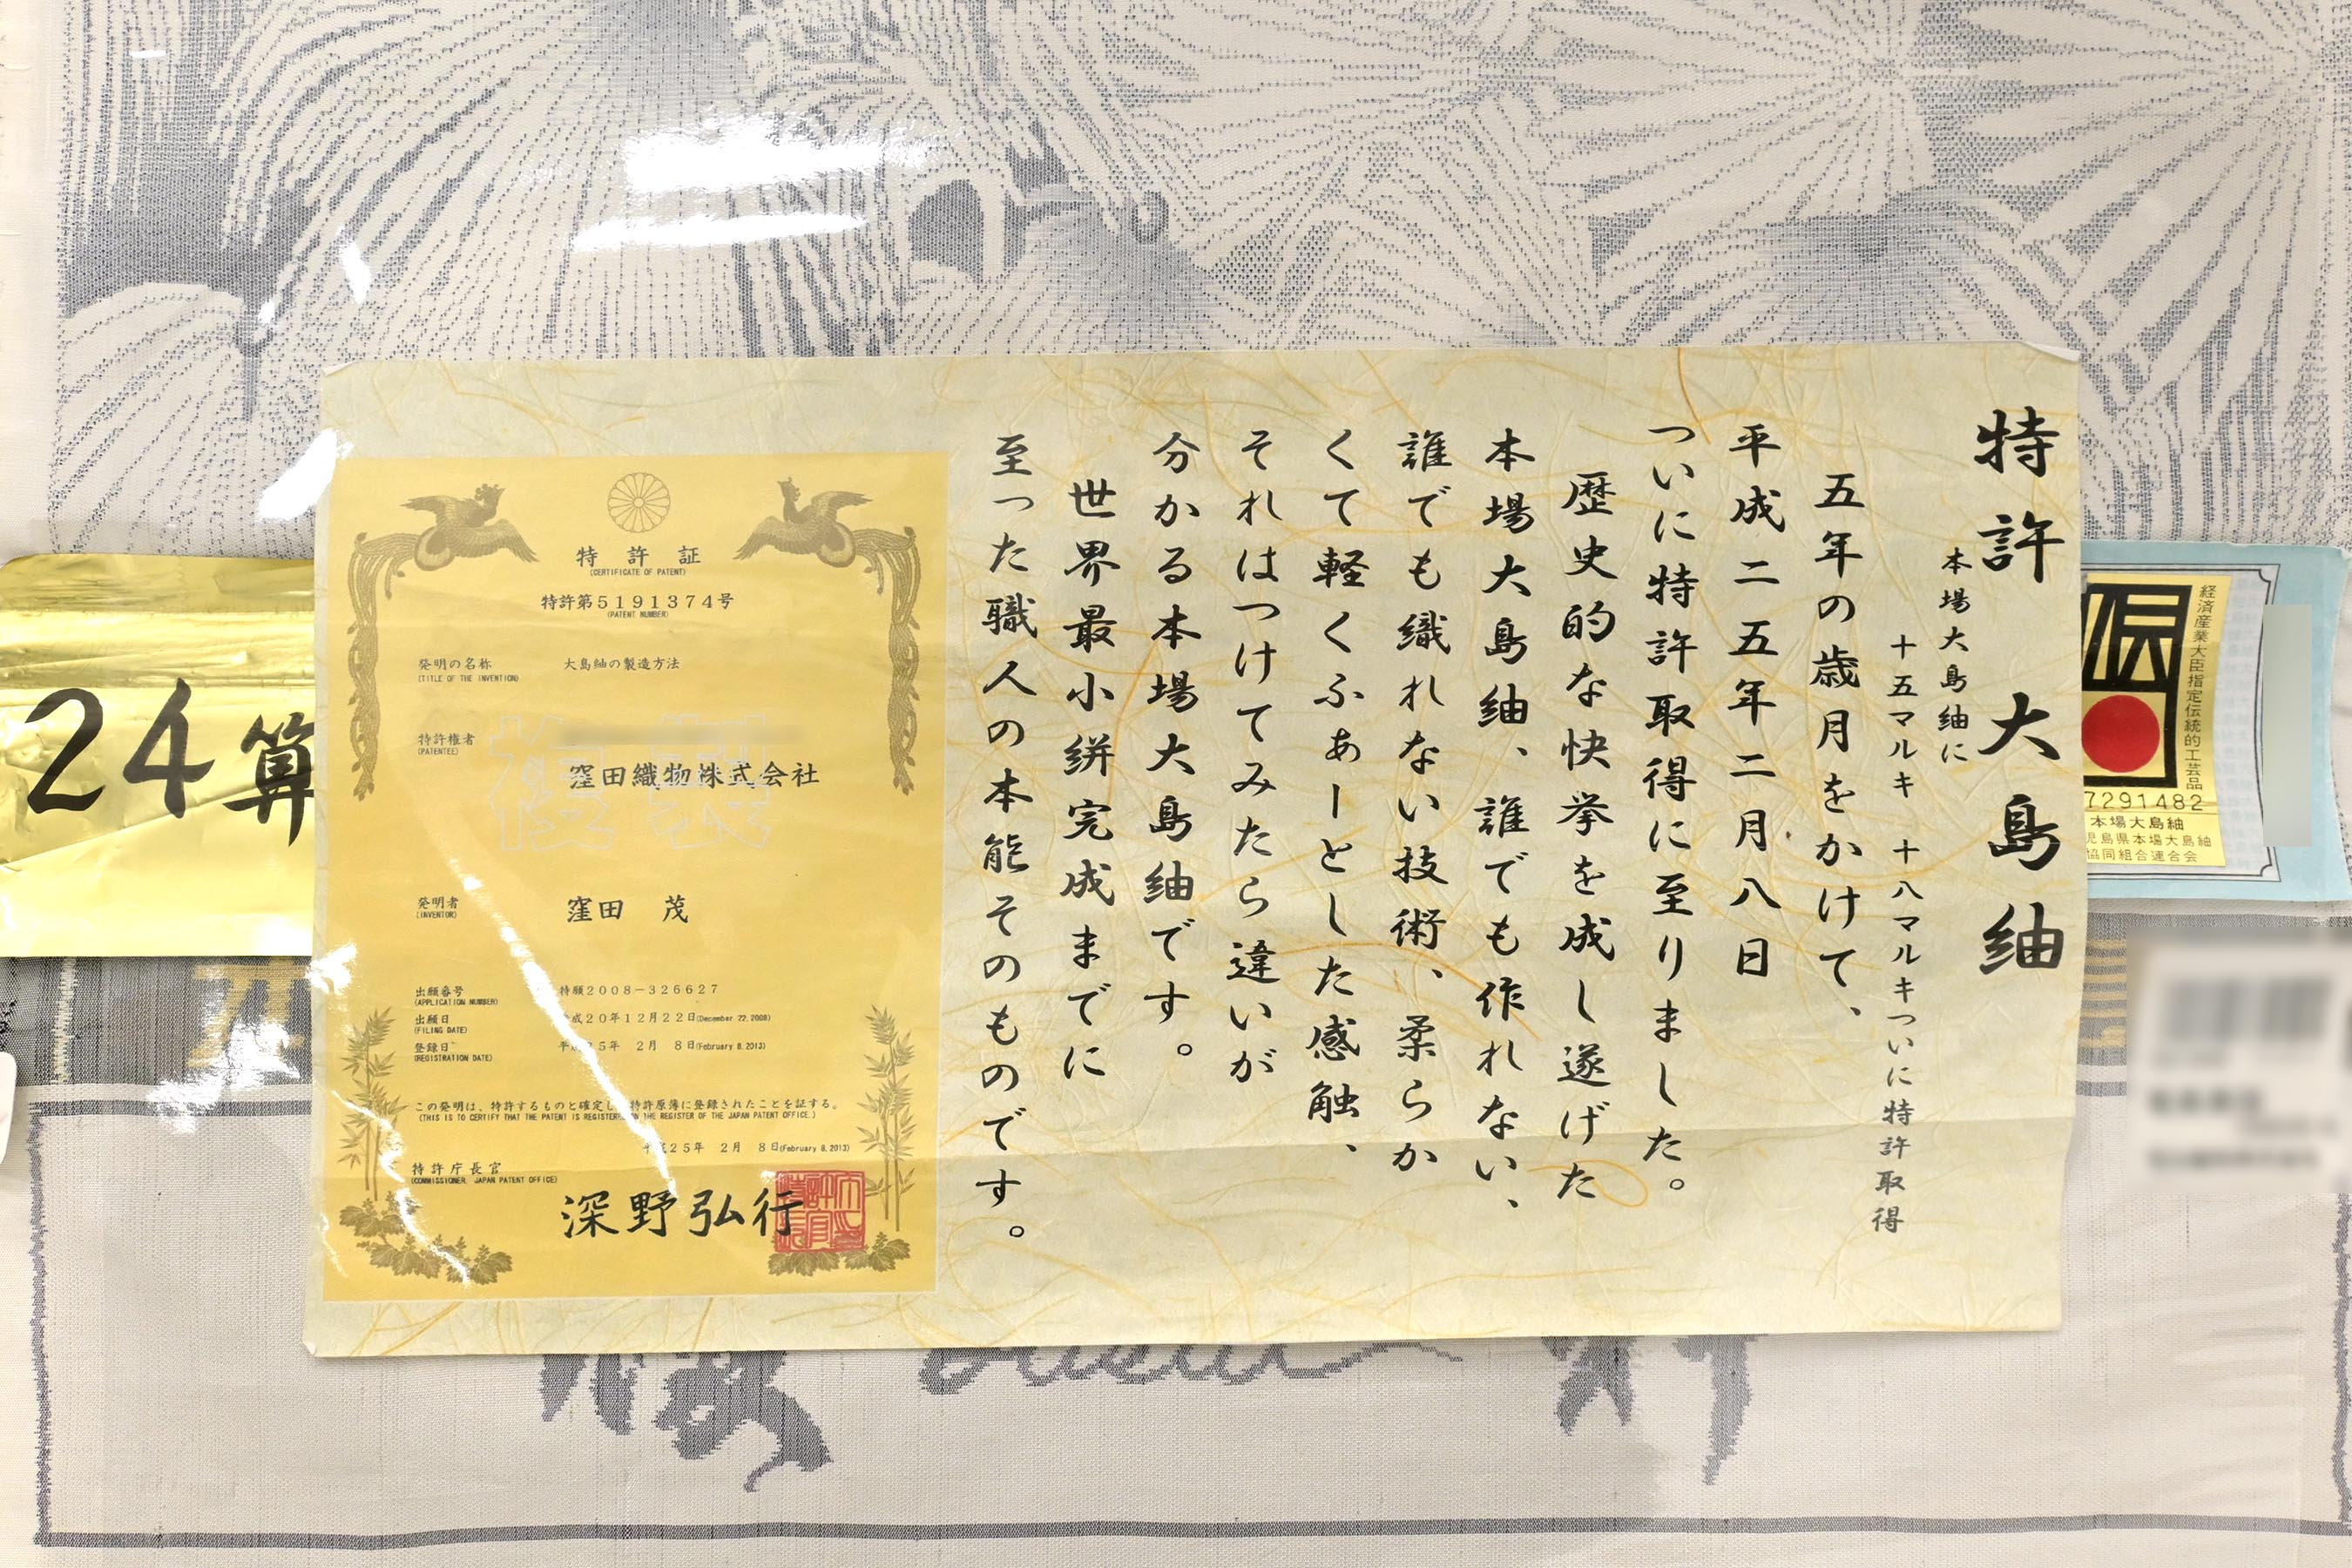 特許 大島紬
本場大島紬に
十五マルキ 十八マルキついに特許取得
五年の歳月をかけて、
平成二五年二月八日
ついに特許取得に至りました。
歴史的な快挙を成し遂げた
本場大島紬、誰でも作れない、
誰でも織れない技術、柔らか
くて軽くふぁーとした感触、
それはつけてみたら違いが
分かる本場大島紬です。
世界最小絣完成までに
至った職人の本能そのものです。
特許証
(CERTIFICATE OF PATENT)
特許第5191374号
(PATENT NUMBER)
発明の名称 大島紬の製造方法
(TITLE OF THE INVENTION)
特許権者
(PATENTEE)
窪田織物株式会社
複製
発明者 窪田 茂
(INVENTOR)
出願番号 特願2008-326627
(APPLICATION NUMBER)
出願日 成20年12月22日(December 22,2008)
(FILING DATE)
登録日 平 5年 2月 8日(February 8,2013)
(REGISTRATION DATE)
この発明は、特許するものと確定し、特許原簿に登録されたことを証する。
(THIS IS TO CERTIFY THAT THE PATENT IS REGISTERED ON THE REGISTER OF THE JAPAN PATENT OFFICE.)
25年 2月 8日(February 8,2013)
特許庁長官
(COMMISSIONER, JAPAN PATENT OFFICE)
深野弘行
24算
伝
経済産業大臣指定伝統的工芸品
7291482
本場大島紬
児島県本場大島紬
協同組合連合会